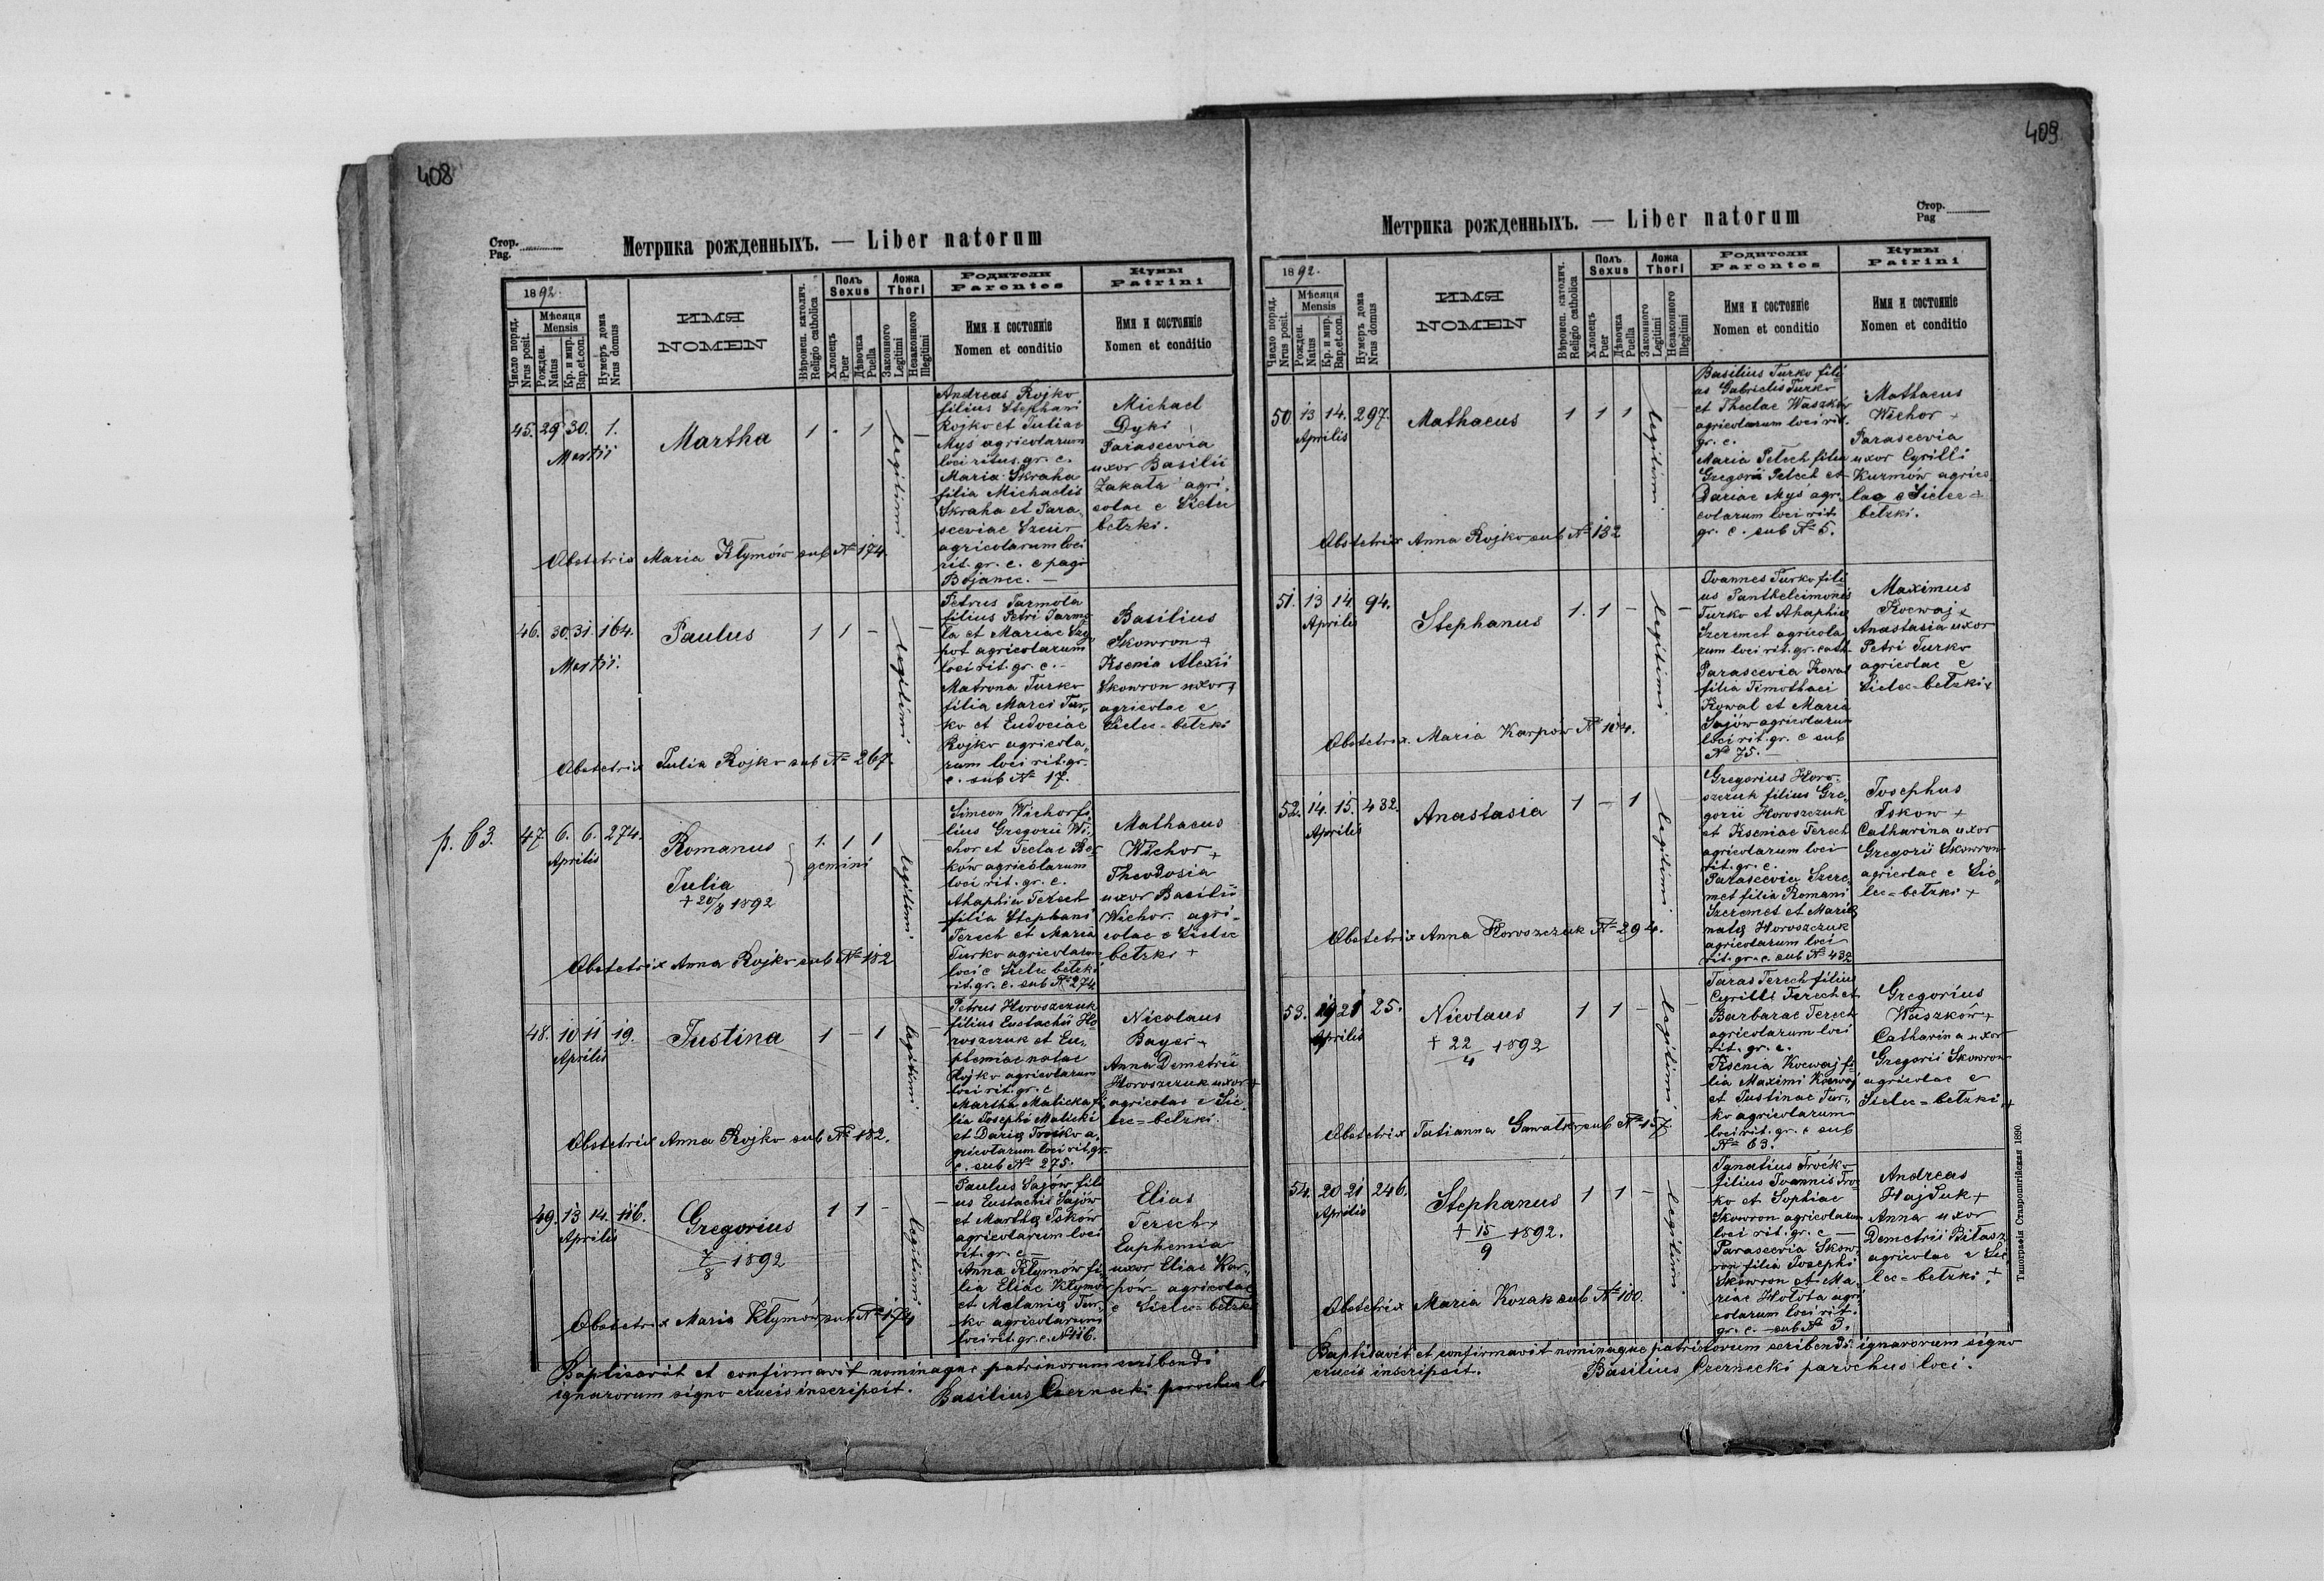 408
Стор.
Pag.
Метрика рожденныхъ. — Liber natorum
1892.
Число поряд.
Nrus posit.
Мѣсяца
Mensis
Рожден.
Natus
Кр. и мир.
Bap.et.con.
Нумеръ дома
Nrus domus
ИМЯ
NOMEN
Вѣроисп. католич.
Religio catholica
Полъ
Sexus
Хлопецъ
Puer
Дѣвочка
Puella
Ложа
Thori
Законного
Legitimi
Незаконного
Illegitimi
Родители
Parentes
Имя и состоянiе
Nomen et conditio
Кумы
Patrini
Имя и состоянiе
Nomen et conditio
45. 29 30. 1.
Martii
Martha
1 · 1
legitimi
Andreas Rojko
filius Stephani
Rojko et Juliae
Myś agricolarum
loci ritus gr. c.
Maria Skraha
filia Michaelis
Skraha et Para-
sceviae Szeur
agricolarum loci
rit. gr. c. e pago
Bojanec. —
Michael
Dyki
Parascevia
uxor Basilii
Zakała agri-
colae e Sielec
bełzki.
Obstetrix Maria Kłymów sub № 174.
46. 30. 31. 164.
Martii.
Paulus
1 1 –
legitimi
Petrus Jarmoła
filius Petri Jarmo-
ła et Mariae
pot agricolarum
loci rit. gr. c. –
Matrona Turko
filia Marci Tur-
ko et Eudociae
Rojko agricola-
rum loci rit. gr.
c. sub № 17.
Basilius
Skowron +
Ksenia Alexii
Skowron uxor +
agricolae e
Sielec=bełzki
Obstetrix Julia Rojko sub № 267.
p. 63.
47 6. 6. 274.
Aprilis
Romanus
Julia
+ 20/8 1892
1. 1 1
gemini
legitimi
Simeon Wichor fi-
lius Gregorii Wi-
chor et Teclae
ków agricolarum
loci rit. gr. c.
Ahaphia Terech
filia Stephani
Terech et Maria
Turko agricolarum
loci e Sielec bełzki
rit. gr. c. sub № 274
Mathaeus
Wichor +
Theodosia
uxor Basilii
Wichor agri-
colae e Sielec
bełzki +
Obstetrix Anna Rojko sub № 182
48. 10 11 19.
Aprilis
Justina
1 – 1
legitimi
Petrus Horoszczuk
filius Eustachii Ho-
roszczuk et Eu-
phemiae natae
Rojko agricolarum
loci rit. gr. c.
Martha Malicka fi-
lia Josephi Malicki
et Daria Troćko a-
gricolarum loci rit. gr.
c. sub № 275.
Nicolaus
Bayer +
Anna Demetrii
Horoszczuk uxor +
agricolae e Sie-
lec=bełzki.
Obstetrix Anna Rojko sub № 182.
49. 13 14. 116.
Aprilis
Gregorius
7/8 1892
1 1 –
legitimi
Paulus Sajów fili-
us Eustachii Sajów
et Martha Iśków
agricolarum loci
rit. gr. c. —
Anna Kłymów fi-
lia Eliae Kłymów
et Melania Tur-
ko agricolarum
loci rit. gr. c. № 116.
Elias
Terech +
Euphemia
uxor Eliae Kar-
pów agricolae
e Sielec=bełzki
Obstetrix Maria Kłymów sub № 174
Baptisavit et confirmavit nominaque patrinorum scribendi
ignarorum signo crucis inscripsit. Basilius Czernecki parochus
409
Стор.
Pag
Метрика рожденныхъ. — Liber natorum
1892.
Число поряд.
Nrus posit.
Мѣсяця
Mensis
Рожден.
Natus
Кр. и мир.
Bap.et.con.
Нумеръ дома
Nrus domus
ИМЯ
NOMEN
Вѣроисп. католич.
Religio catholica
Полъ
Sexus
Хлопецъ
Puer
Дѣвочка
Puella
Ложа
Thori
Законного
Legitimi
Незаконного
Illegitimi
Родители
Parentes
Имя и состоянiе
Nomen et conditio
Кумы
Patrini
Имя и состоянiе
Nomen et conditio
50 13 14. 297.
Aprilis
Mathaeus
1 1 1
legitimi
Basilius Turko fili-
us Gabrielis Turko
et Theclae Waszków
agricolarum loci rit.
gr. c.
Maria Petech filia
Gregorii Petech et
Dariae Myś agri-
colarum loci rit
gr. c. sub № 5.
Mathaeus
Wichor +
Parascevia
uxor Cyrilli
Kurmów agrico-
lae e Sielec +
bełzki.
Obstetrix Anna Rojko sub № 132
51. 13 14 94.
Aprilis
Stephanus
1. 1 –
legitimi
Joannes Turko fili-
us Pantheleimonis
Turko et Ahaphia
Szeremet agricola-
rum loci rit. gr. cath
Parascevia Kowal
filia Timothaei
Kowal et Maria
Sajów agricolarum
loci rit. gr. c sub
№ 75. —
Maximus
Kocwaj +
Anastasia uxor
Petri Turko
agricolae e
Sielec=bełzki +
Obstetrix. Maria Karpów № 104.
52. 14. 15. 432.
Aprilis
Anastasia
1 – 1
legitimi
Gregorius Horo-
szczuk filius Gre-
gorii Horoszczuk
et Kseniae Terech
agricolarum loci
rit. gr. c.
Parascevia Szere-
met filia Romani
Szeremet et Maria
nata Horoszczuk
agricolarum loci
rit. gr. c. sub № 432
Josephus
Iskow +
Catharina uxor
Gregorii Skowron
agricolae e Sie-
lec=bełzki +
Obstetrix Anna Horoszczuk № 294.
53. 19 21 25.
Aprilis
Nicolaus
+ 22/4 1892
1 1 –
legitimi
Taras Terech filius
Cyrilli Terech et
Barbarae Terech
agricolarum loci
rit. gr. c.
Ksenia Kocwaj fi-
lia Maximi Kocwaj
et Justinae Tur-
ko agricolarum
loci rit. gr. c sub
№ 63.
Gregorius
Waszków +
Catharina uxor
Gregorii Skowron
agricolae e
Sielec=bełzki +
Obstetrix Tatianna sub № 157
54. 20 21 246.
Aprilis
Stephanus
+ 15/9 1892.
1 1 –
legitimi
Ignatius Troćko
filius Joannis Tro-
ko et Sophiae
Skowron agricolarum
loci rit. gr. c —
Parascevia Skow-
ron filia Josephi
Skowron et Ma-
riae Hołota agri
colarum loci rit.
gr. c. – sub № 3.
Andreas
Hajduk +
Anna uxor
Demetrii Biłasz
agricolae e Sie-
lec=bełzki. +
Obstetrix Maria Kozak sub № 180.
Baptisavit et confirmavit nominaque patrinorum scribendi ignarorum signo
crucis inscripsit. Basilius Czernecki parochus loci.
Типографiя Ставропигiйская 1890.